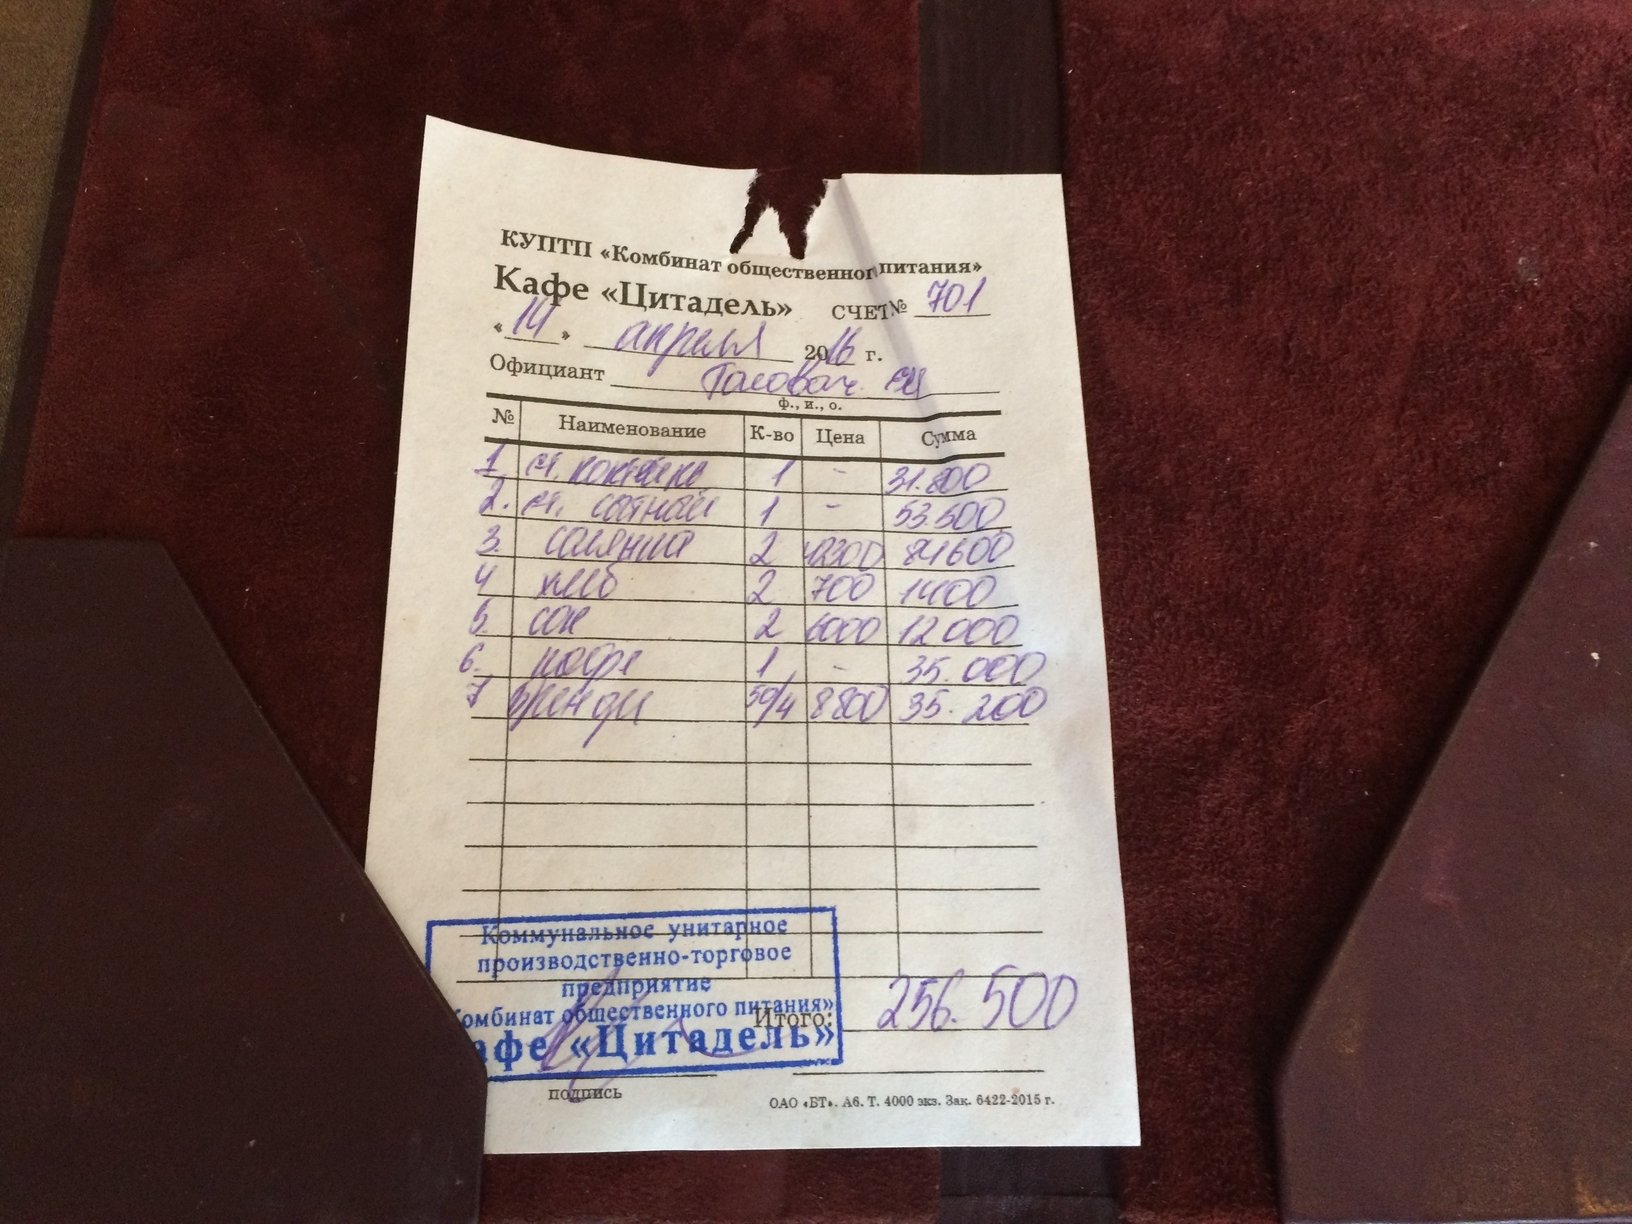 КУПТП «Комбинат общественног питания»
Кафе «Цитадель» СЧЕТ № 701
«14» апреля 2016 г.
Официант Головач
ф., и., о.
№ Наименование К-во Цена Сумма
1. коктейль 1 - 34.800
2. 1 - 53.500
3. солянка 2 42300 84600
4 хлеб 2 700 1400
5. сок 2 6000 12000
6. кофе 1 - 35.000
7 Бренди 50/4 8800 35.200
Коммунальное унитарное
производственно-торговое
предприятие
омбинат общественного питания»
афе «Цитадель»
Итого: 256.500
подпись
ОАО «БТ». А6. Т. 4000 экз. Зак. 6422-2015 г.